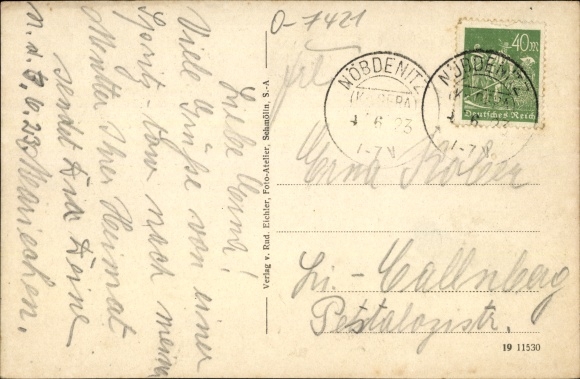 O-7421
Liebe Erna!
Viele Grüße von einer
Spritz-tour nach meiner
Mentter Ihrer Heimat
sendet Dir Deine
N. d. 3.6.23 Mariechen.
Verlag v. Rud. Eichler, Foto-Atelier, Schmölln, S.-A
NÖBDENITZ
6 23
NÖBDENITZ
6 23
40 M
Deutsches Reich
Frl
Erna Köhler
Li.-Callnberg
Pestalozzistr.
19 11530